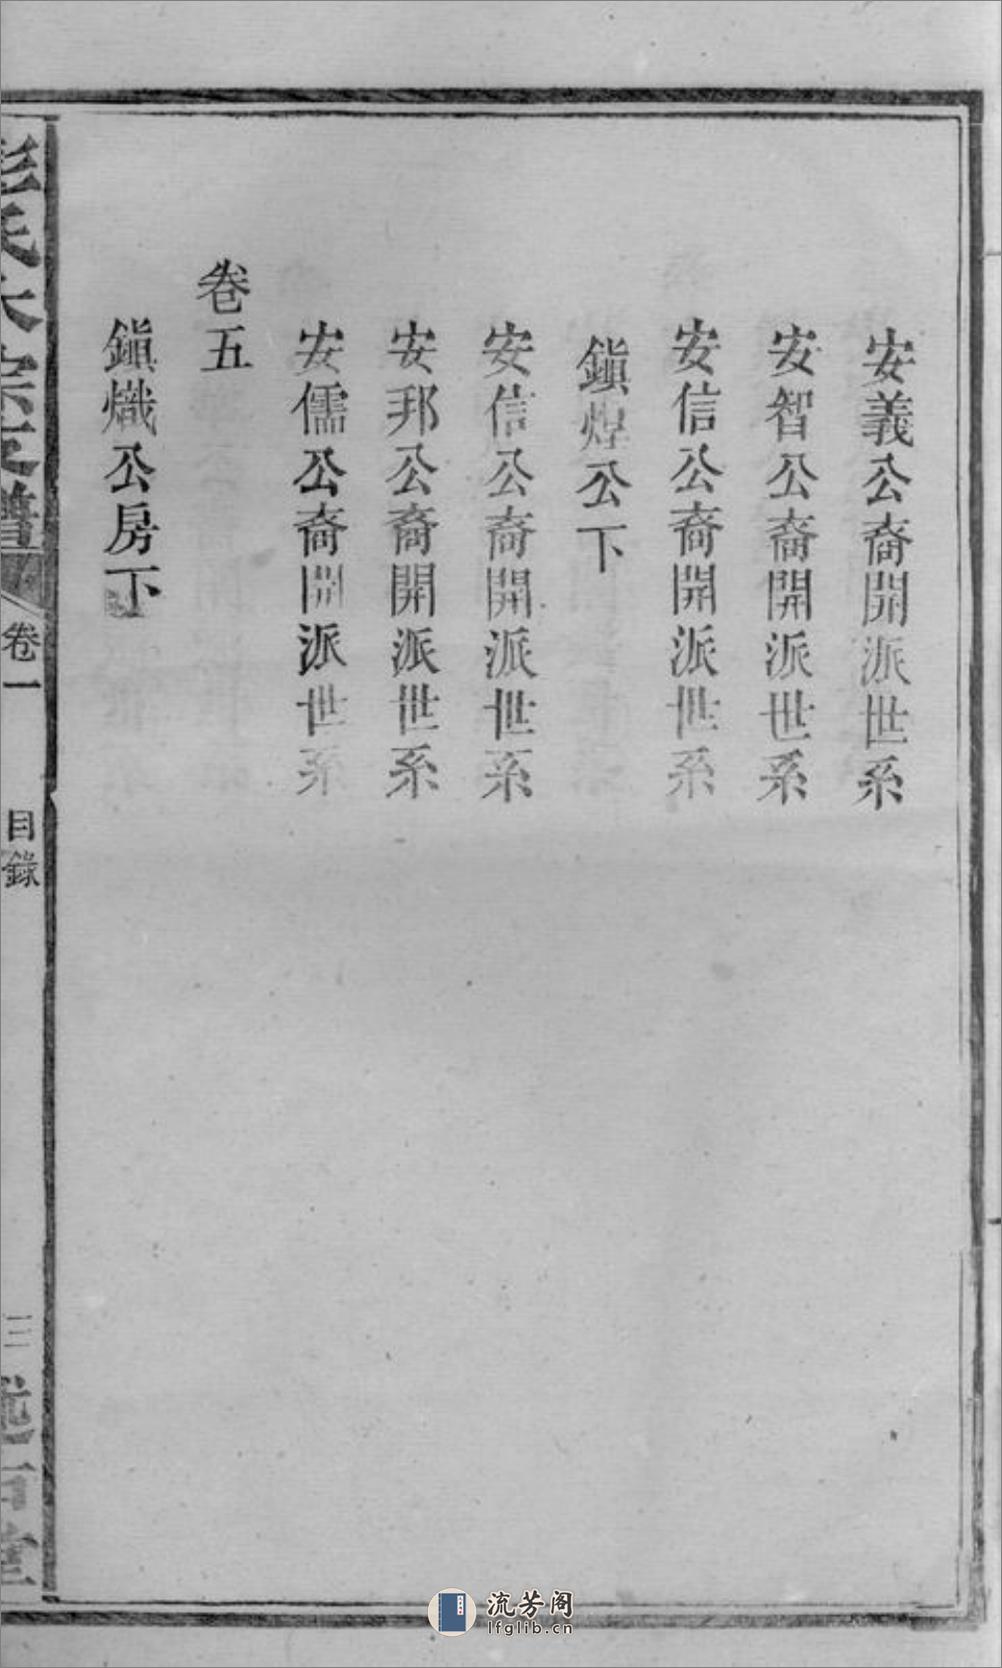 安義公裔開派世系
安智公裔開派世系
安信公裔開派世系
鎭煌公下
安信公裔開派世系
安邦公裔開派世系
安儒公裔開派世系
卷五
鎭熾公房下
彭氏大宗支譜
卷一
目錄
三
述古堂
流芳阁
lfglib.cn